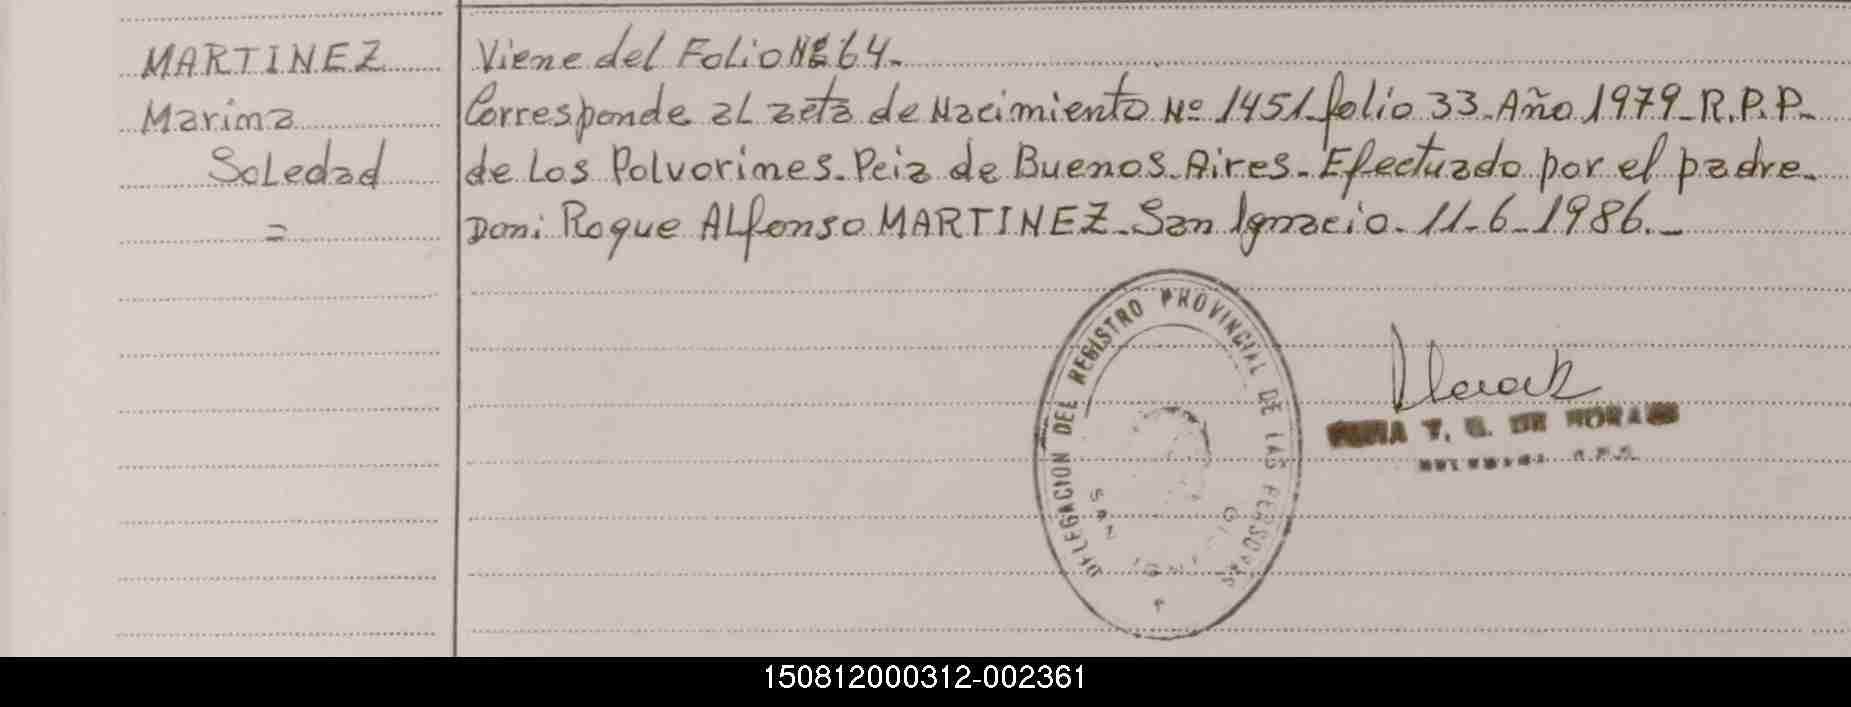 MARTINEZ
Marina
Soledad
=
Viene del Folio Nº 64.
Corresponde al acta de Nacimiento Nº 1451 folio 33. Año 1979. R.P.P.
de Los Polvorines. Pcia de Buenos Aires. Efectuado por el padre.
Don: Roque Alfonso MARTINEZ. San Ignacio. 11-6-1986.
DELEGACION DEL REGISTRO PROVINCIAL DE LAS PERSONAS
SAN
T. G. DE MORAES
150812000312-002361